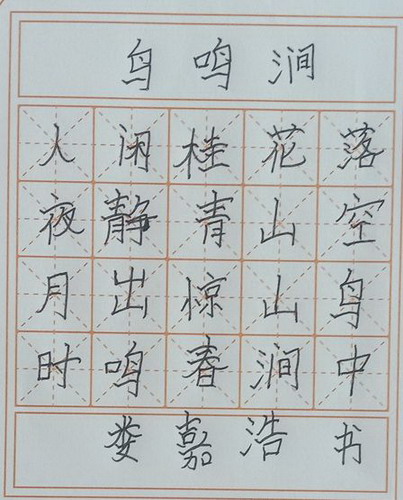 鸟鸣涧
人闲桂花落
夜静青山空
月出惊山鸟
时鸣春涧中
娄嘉浩书